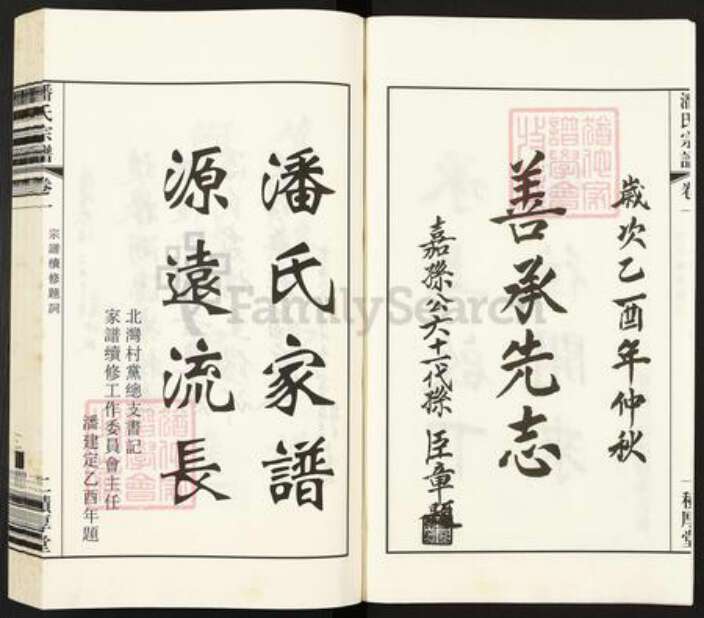 歲次乙酉年仲秋
善承先志
嘉璨公六十一代孫 臣章題
潘氏宗譜 卷一
積厚堂
潘氏家譜
源遠流長
北灣村黨總支書記
家譜續修工作委員會主任
潘建定乙酉年題
潘氏宗譜 卷一
宗譜續修題詞
二 積厚堂
FamilySearch